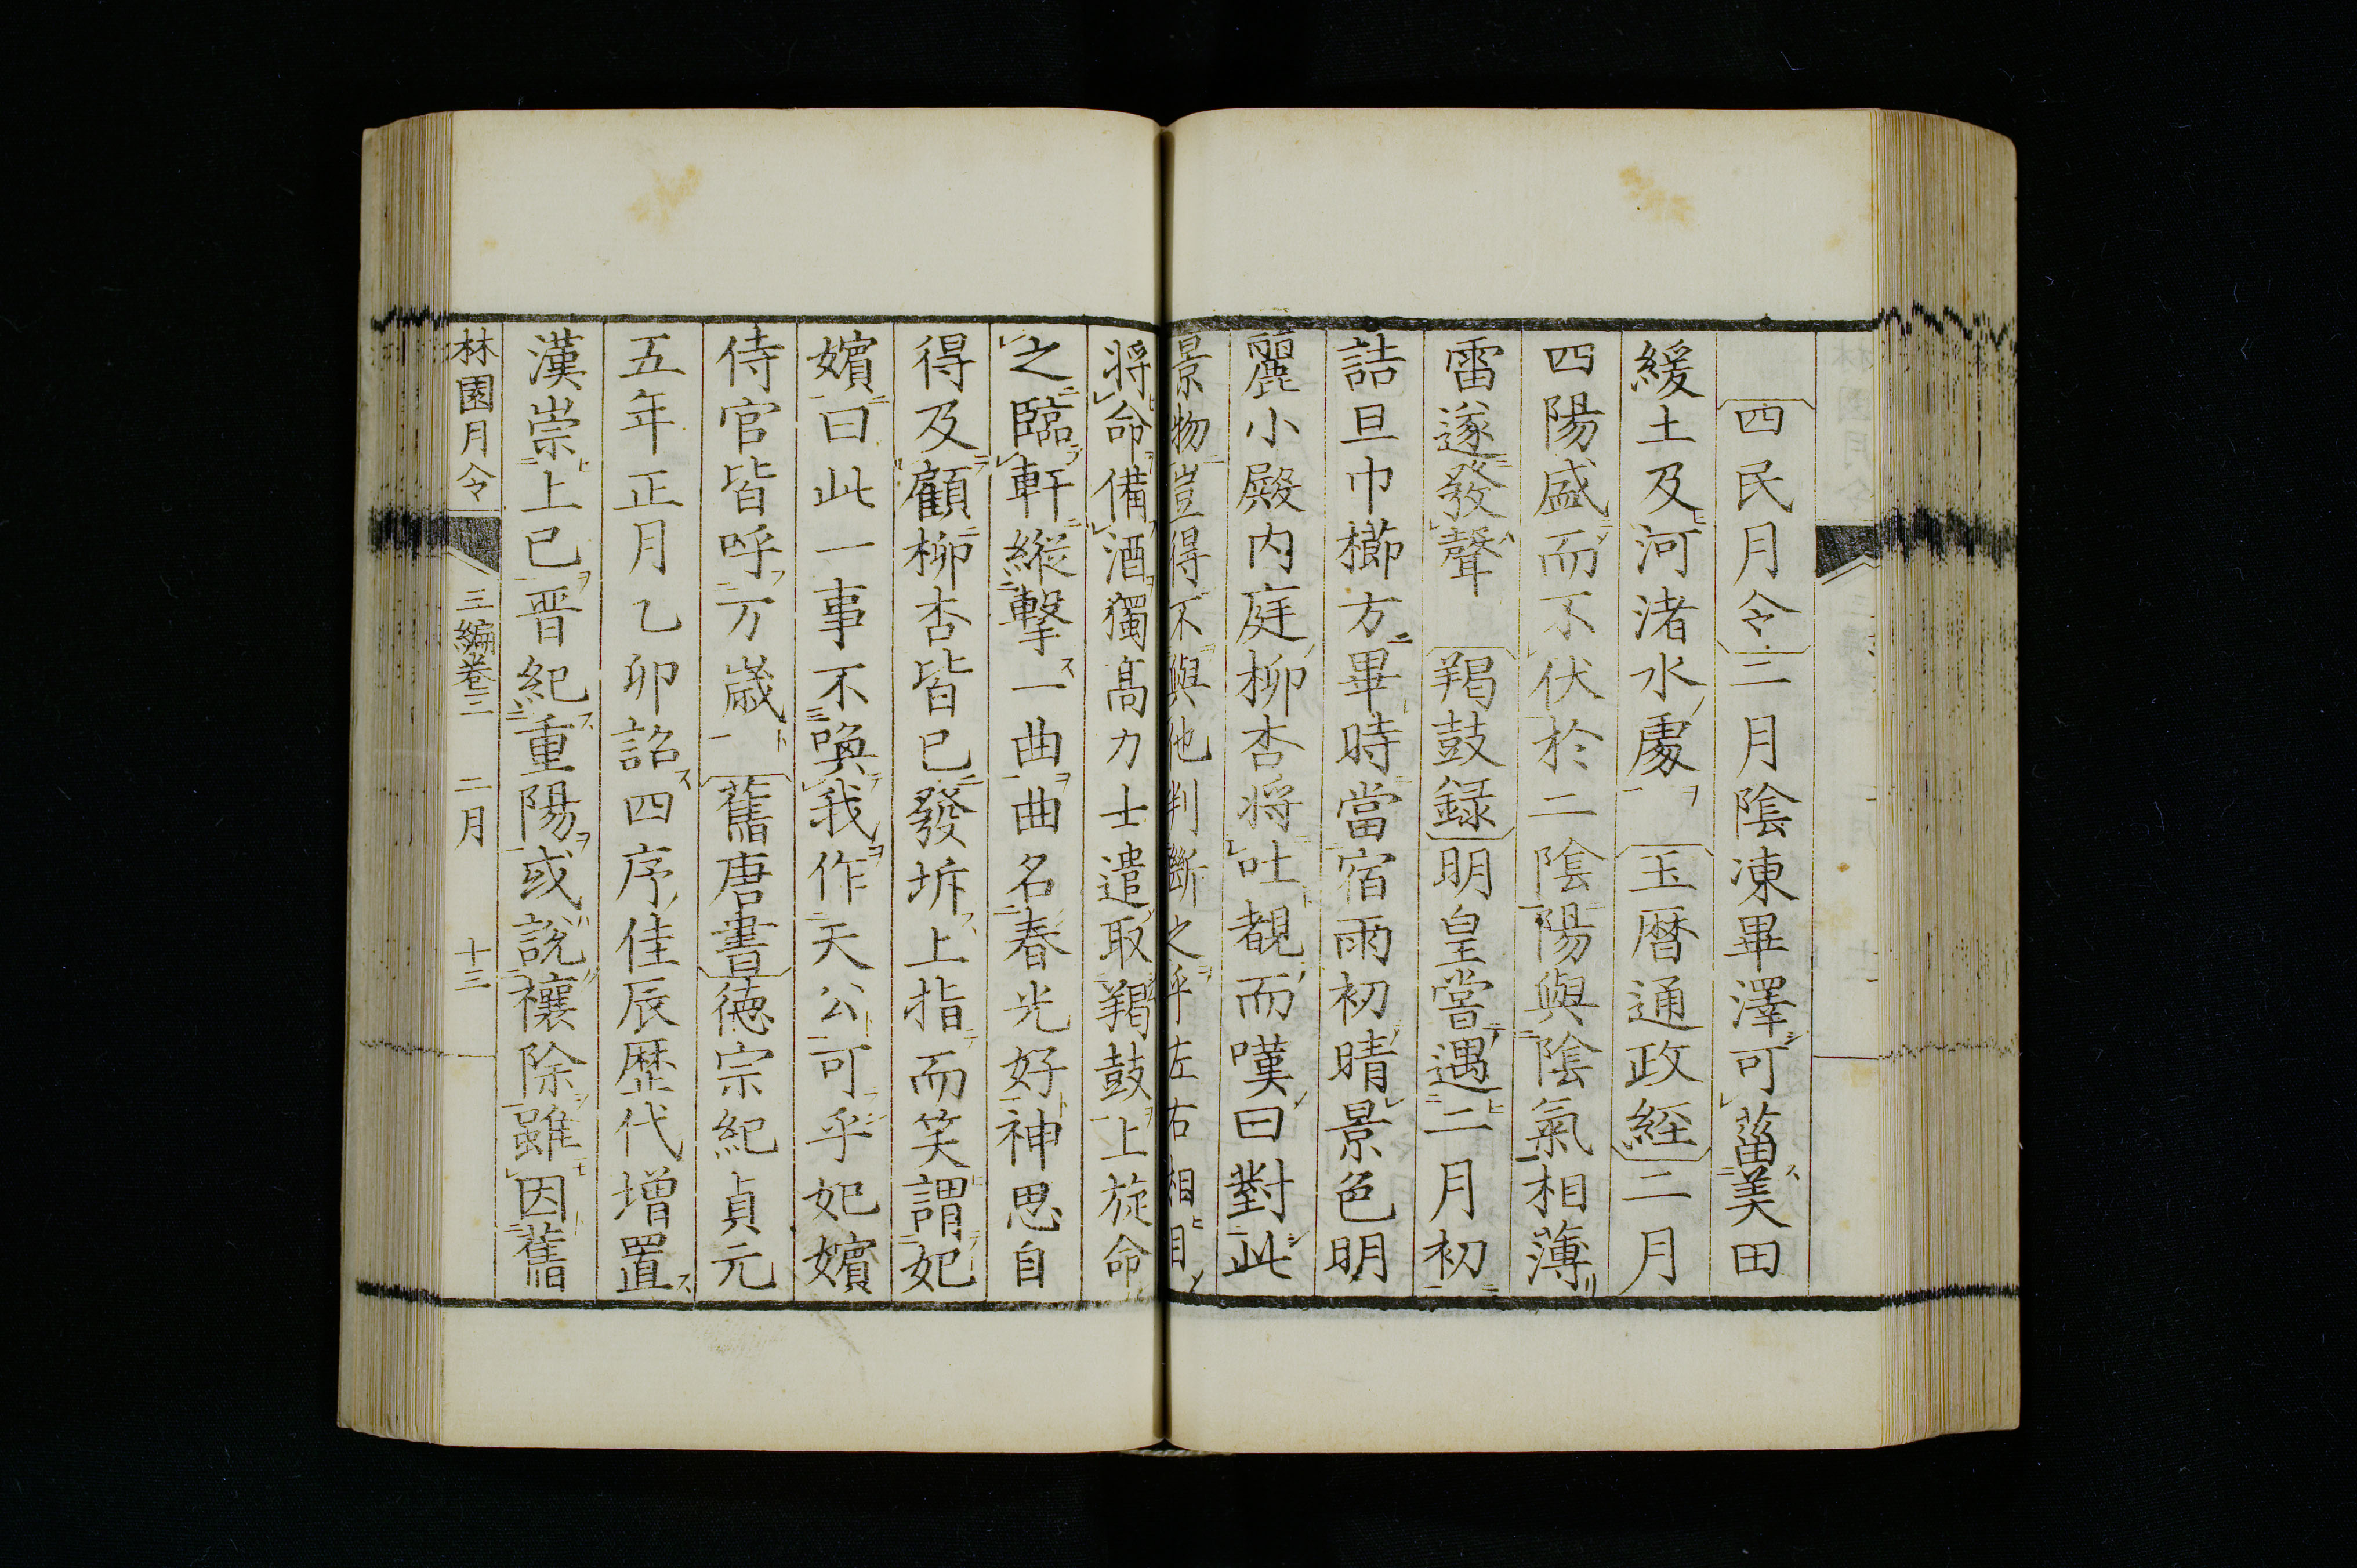 四民月令二月陰凍畢澤可菑美田
緩土及河渚水處　玉暦通政経二月
四陽盛而不伏於二陰陽與陰氣相薄
雷遂發聲　羯鼓録明皇嘗遇二月初
詰旦巾櫛方畢時當宿雨初晴景色明
麗小殿内庭柳杏将吐覩而嘆曰對此
景物豈得不與他判斷之乎左右相目
将命備酒獨髙力士遣取羯鼓上旋命
之臨軒縦撃一曲曲名春光好神思自
得及顧柳杏皆已發坼上指而笑謂妃
嬪曰此一事不喚我作天公可乎妃嬪
侍官皆呼万嵗　舊唐書徳宗紀貞元
五年正月乙卯詔四序佳辰歴代増置
漢崇上巳晋紀重陽或説禳除雖因舊
林園月令　三編巻三　二月　十三